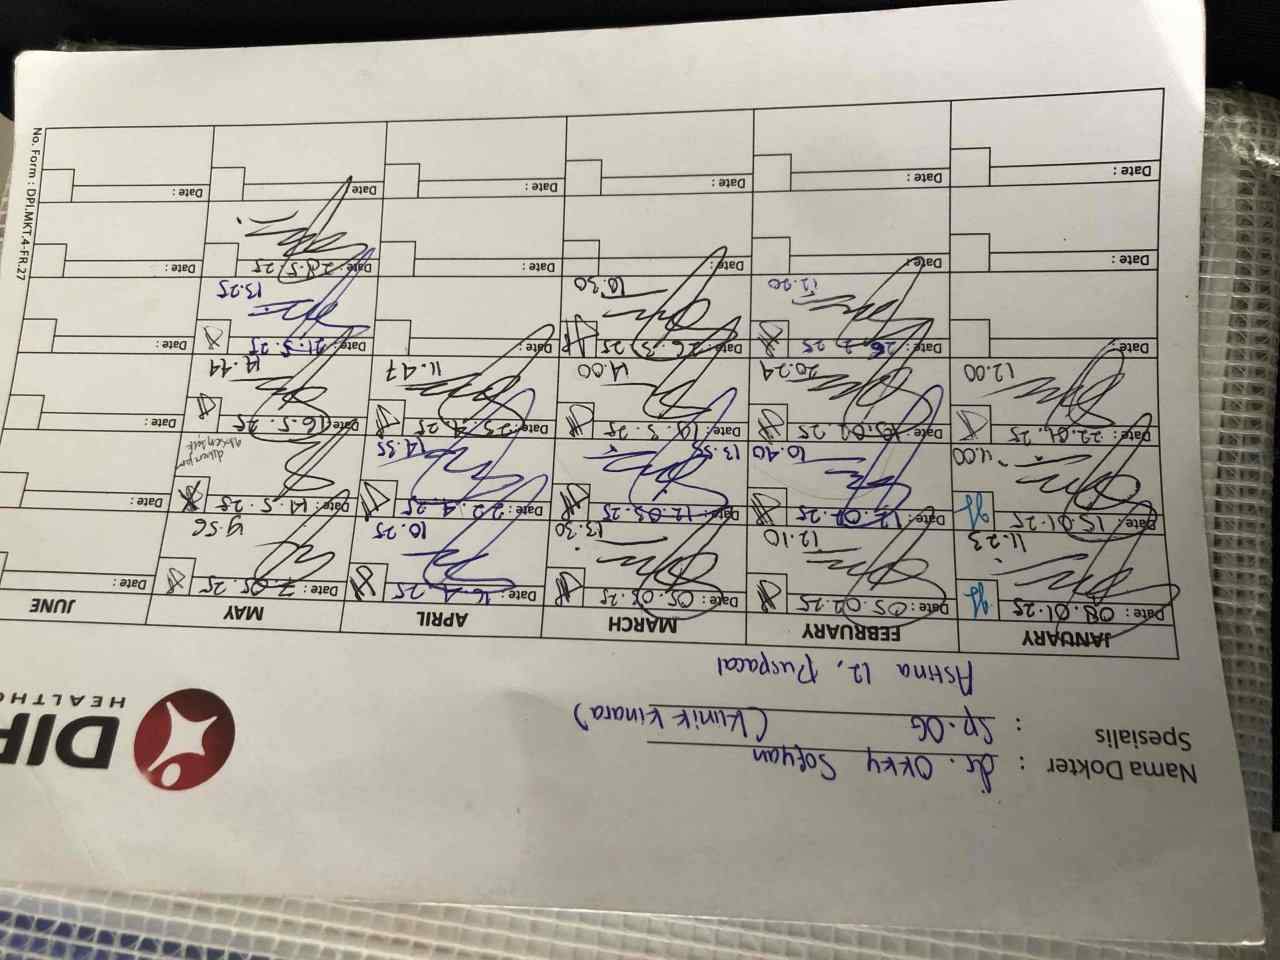 Nama Dokter : dr. Okky Sofyan
Spesialis : Sp.OG (Klinik Kinara)
Astina 12, Puspacal
DIP
HEALTHC
JANUARY FEBRUARY MARCH APRIL MAY JUNE
Date : 08.01.25 Date : 05.02.25 Date : 05.03.25 Date : 16.4.25 Date : 7.05.25 Date :
11.23 12.10 13.30 10.25
Date : 15.01.25 Date : 12.02.25 Date : 12.03.25 Date : 22.4.25 Date : 14.5.25 Date :
11.00 10.40 13.55 14.35
Date : 22.01.25 Date : 25 Date : 19.3.25 Date : 23.4.25 Date : 16.5.25 Date :
12.00 20.29 11.00 11.47 14.44
Date : Date : 26.2.25 Date : 26.3.25 Date : Date : 21.5.25 Date :
12.20 10.30 13.25
Date : Date : Date : Date : Date : 28.5.25 Date :
Date : Date : Date : Date : Date : Date :
No. Form : DPI.MKT.4-FR.27